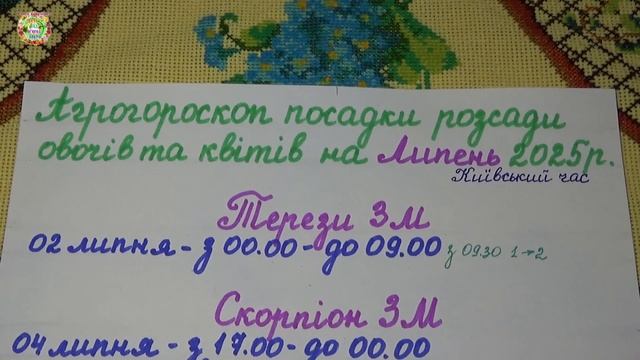 Агрогороскоп посадки розсади
овочів та квітів на Липень 2025р.
Київський час
Терези ЗМ
02 липня - з 00.00 - до 09.00 з 09.30 1→2
Скорпіон ЗМ
04 липня - з 17.00 - до 00.00